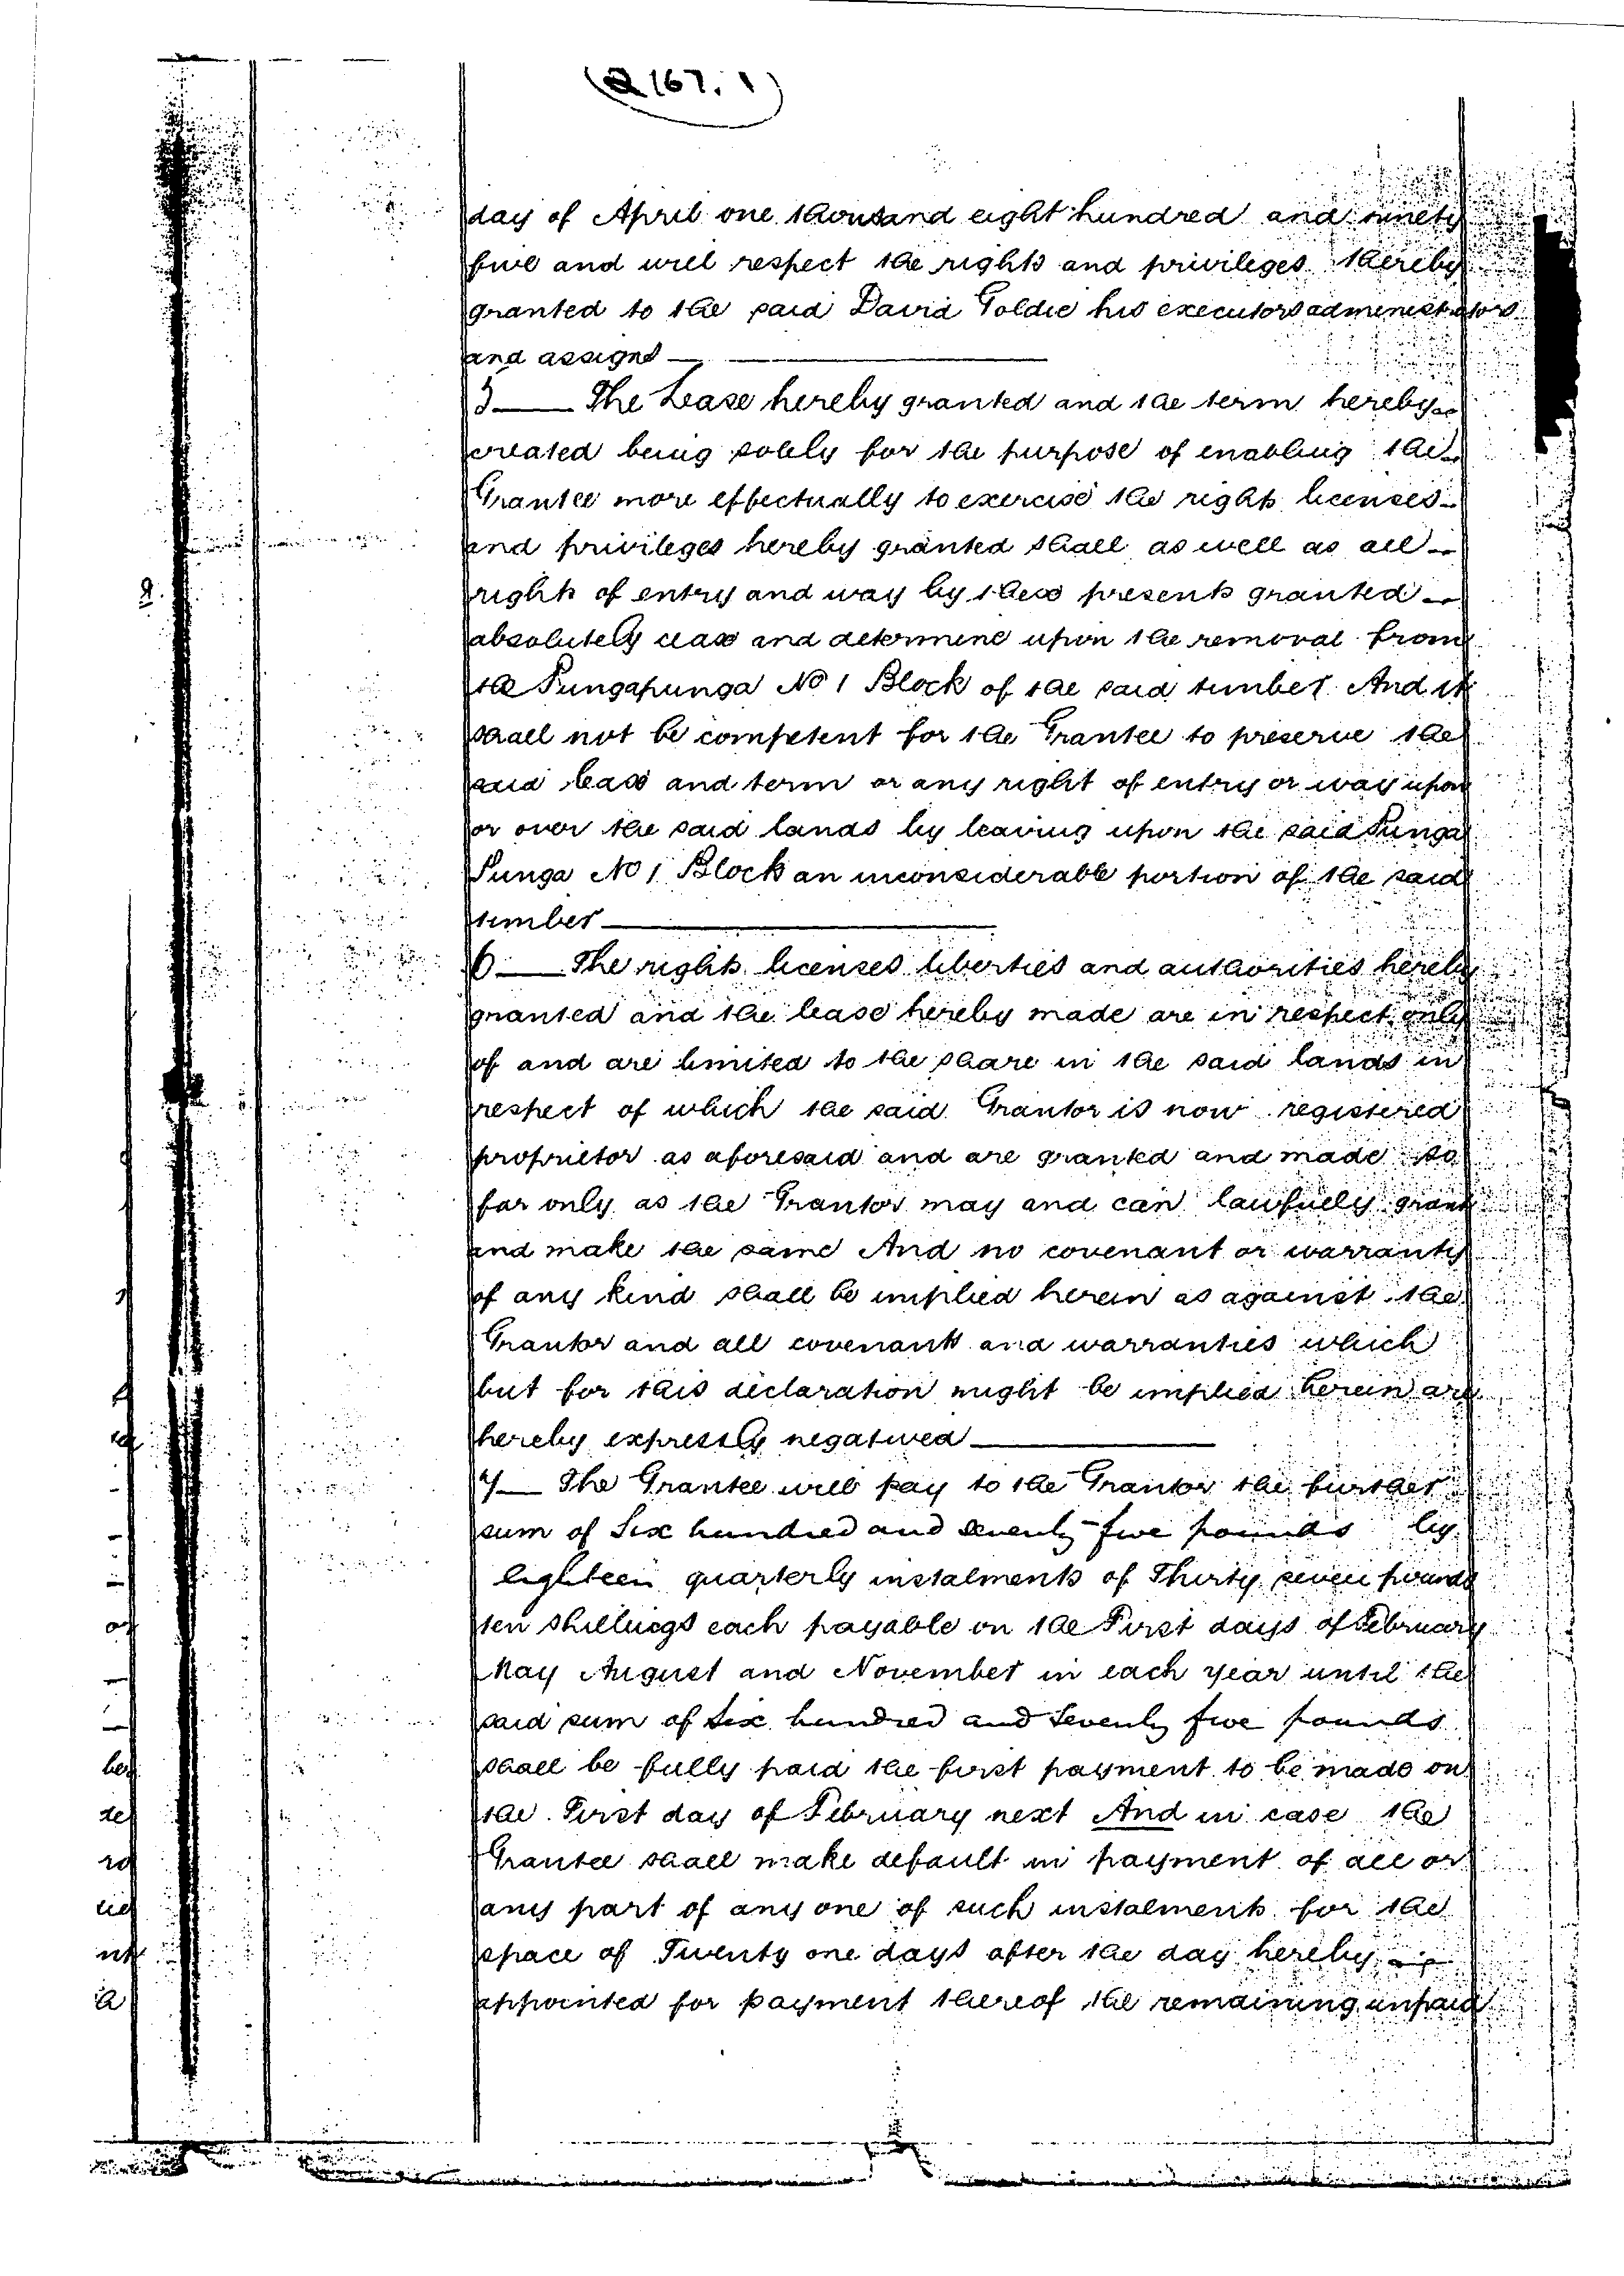 (Q 167. 1)
day of April one thousand eight hundred and ninety
five and will respect the rights and privileges thereby
granted to the said David Goldie his executors administrators
and assigns
5 The Lease hereby granted and the term hereby
created being solely for the purpose of enabling the
Grantee more effectually to exercise the rights licenses
and privileges hereby granted shall as well as all
rights of entry and way by these presents granted
absolutely cease and determine upon the removal from
the Pungapunga No 1 Block of the said timber And it
shall not be competent for the Grantee to preserve the
said lease and term or any right of entry or way upon
or over the said lands by leaving upon the said Punga
Punga No 1 Block an inconsiderable portion of the said
timber
6 The rights licenses liberties and authorities hereby
granted and the lease hereby made are in respect only
of and are limited to the share in the said lands in
respect of which the said Grantor is now registered
proprietor as aforesaid and are granted and made so
far only as the Grantor may and can lawfully grant
and make the same And no covenant or warranty
of any kind shall be implied herein as against the
Grantor and all covenants and warranties which
but for this declaration might be implied herein are
hereby expressly negatived
7 The Grantee will pay to the Grantor the further
sum of Six hundred and seventy five pounds by
Eighteen quarterly instalments of Thirty seven pounds
ten shillings each payable on the First days of February
May August and November in each year until the
said sum of Six hundred and Seventy five pounds
shall be fully paid the first payment to be made on
the First day of February next And in case the
Grantee shall make default in payment of all or
any part of any one of such instalments for the
space of Twenty one days after the day hereby
appointed for payment thereof the remaining unpaid